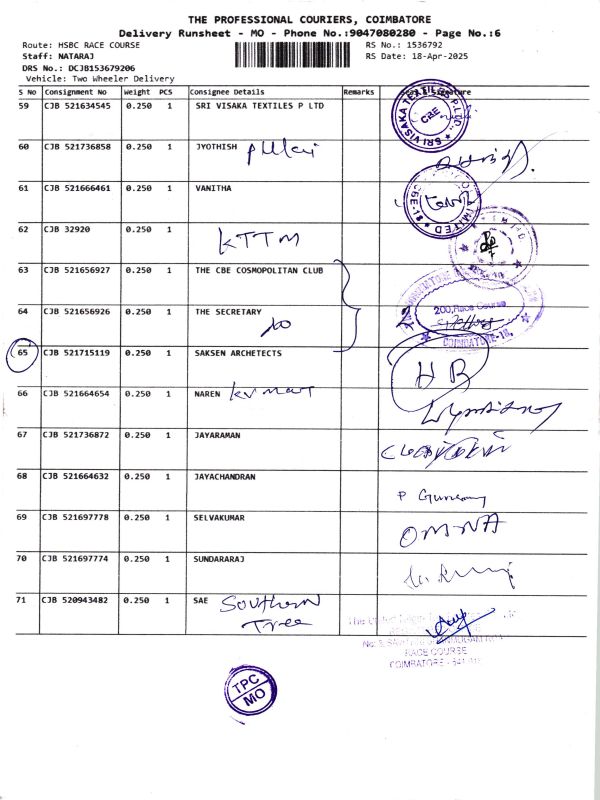 THE PROFESSIONAL COURIERS, COIMBATORE
Delivery Runsheet - MO - Phone No.:9047080280 - Page No.:6
Route: HSBC RACE COURSE
RS No.: 1536792
Staff: NATARAJ
RS Date: 18-Apr-2025
DRS No.: DCJB153679206
Vehicle: Two Wheeler Delivery
S No Consignment No Weight PCS Consignee Details Remarks Signature
59 CJB 521634545 0.250 1 SRI VISAKA TEXTILES P LTD
SRI VISAKA TEXTILES P.LTD.
CBE
60 CJB 521736858 0.250 1 JYOTHISH
61 CJB 521666461 0.250 1 VANITHA
LIMITED
62 CJB 32920 0.250 1
KTTM
63 CJB 521656927 0.250 1 THE CBE COSMOPOLITAN CLUB
64 CJB 521656926 0.250 1 THE SECRETARY
200, Race Course
COIMBATORE-18.
65 CJB 521715119 0.250 1 SAKSEN ARCHETECTS
HB
66 CJB 521664654 0.250 1 NAREN Kumar
67 CJB 521736872 0.250 1 JAYARAMAN
68 CJB 521664632 0.250 1 JAYACHANDRAN
P
69 CJB 521697778 0.250 1 SELVAKUMAR
OMNA
70 CJB 521697774 0.250 1 SUNDARARAJ
71 CJB 520943482 0.250 1 SAE Southern
Tree
RACE COURSE
COIMBATORE - 641 018
TPC
MO